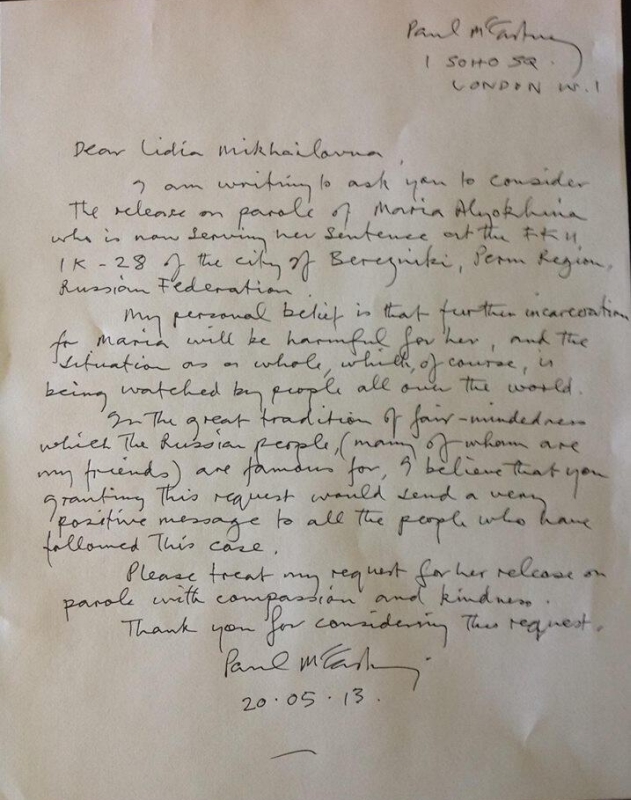 Paul McCartney
1 SOHO SQ.
LONDON W.1
Dear Lidia Mikhailovna,
I am writing to ask you to consider
the release on parole of Maria Alyokhina
who is now serving her sentence at the FKU
IK-28 of the city of Berezniki, Perm Region,
Russian Federation.
My personal belief is that further incarceration
for Maria will be harmful for her, and the
situation as a whole, which, of course, is
being watched by people all over the world.
In the great tradition of fair-mindedness
which the Russian people, (many of whom are
my friends) are famous for, I believe that you
granting this request would send a very
positive message to all the people who have
followed this case.
Please treat my request for her release on
parole with compassion and kindness.
Thank you for considering this request.
Paul McCartney
20.05.13.